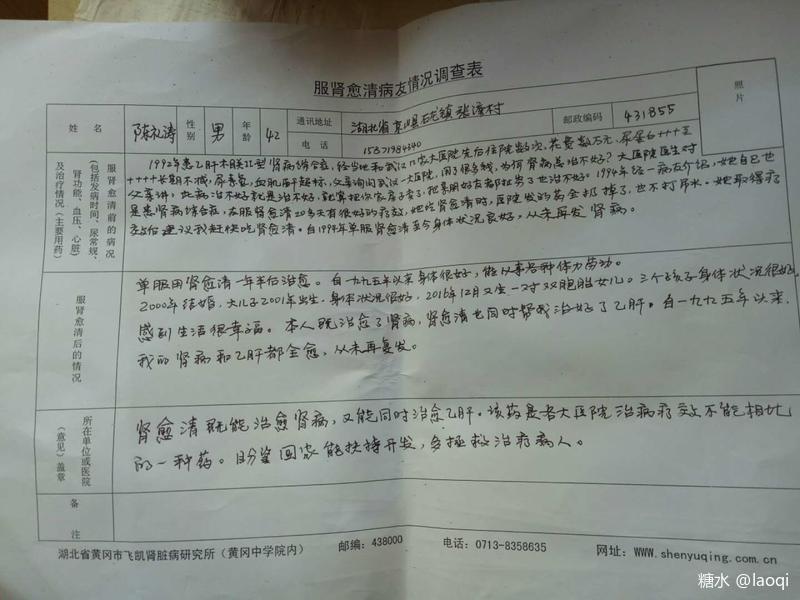 服肾愈清病友情况调查表
姓 名 陈礼涛 性别 男 年龄 42 通讯地址 湖北省京山县石龙镇张湾村 邮政编码 431855 照片
电 话 15871984340
服肾愈清前的病况(包括发病时间、尿常规、肾功能、血压、心脏)及治疗情况(主要用药)
1992年患乙肝相关II型肾病综合症,经当地和武汉几家大医院先后住院数次,花费数万元,尿蛋白++++至
++++长期不减,尿素氮,血肌酐超标,父亲询问武汉一大医院,用了很多钱,为何肾病总治不好?大医院医生对
父亲讲,此病治不好就是治不好,就算把你家房子卖了,把最用好东西都扯男了也治不好。1994年经一病友介绍,她自己也
是患肾病综合症,在服肾愈清20多天有很好的疗效,她吃肾愈清时,医院发的药全扔掉了,也不打吊水。她取得疗
效后建议我赶快吃肾愈清。自1994年单服肾愈清至今身体状况良好,从未再发肾病。
服肾愈清后的情况
单服用肾愈清一年半后治愈。自一九九五年以来身体很好,能从事各种体力劳动。
2000年结婚,大儿子2001年出生,身体状况很好,2016年12月又生一对双胞胎女儿。三个孩子身体状况很好,
感到生活很幸福。本人既治愈了肾病,肾愈清也同时帮我治好了乙肝。自一九九五年以来,
我的肾病和乙肝都全愈,从未再复发。
所在单位或医院(意见)盖章
肾愈清既能治愈肾病,又能同时治愈乙肝。该药是各大医院治病疗效不能相比
的一种药。盼望国家能扶持开发,多拯救治疗病人。
备 注
湖北省黄冈市飞凯肾脏病研究所(黄冈中学院内) 邮编:438000 电话:0713-8358635 网址:www.shenyuqing.com.cn
糖水 @laoqi